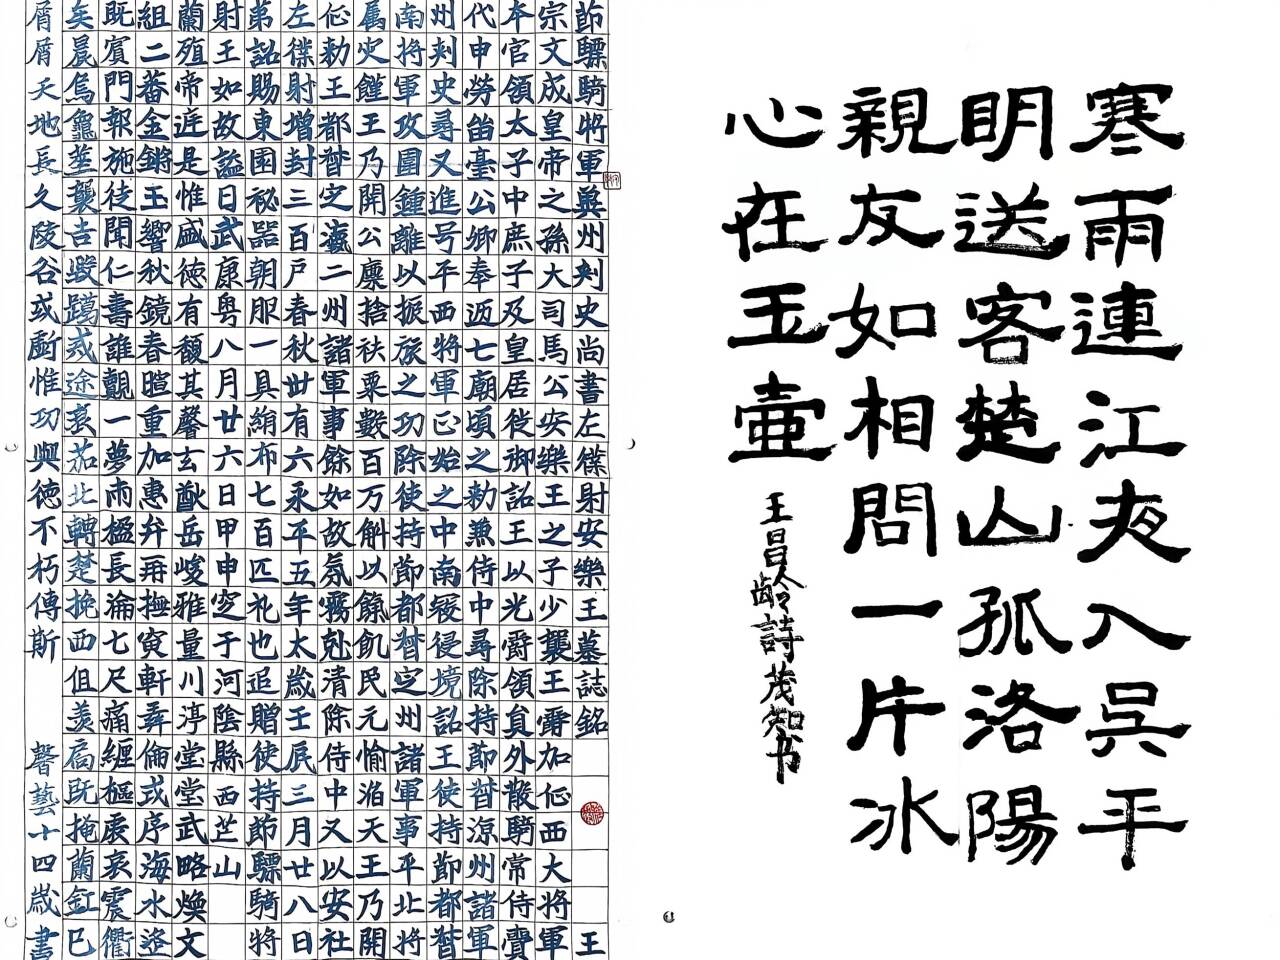 寒雨連江夜入吳平
明送客楚山孤洛陽
親友如相問一片冰
心在玉壺
王昌齡詩茂知书
節驃騎將軍冀州刺史尚書左僕射安樂王墓誌銘 王
宗文成皇帝之孫大司馬公安樂王之子少襲王爵加征西大將軍
本官領太子中庶子及皇居徙御詔王以光爵領員外散騎常侍賚
代申勞臺公卿奉迓七廟頃之勑兼侍中尋除持節督涼州諸軍
州刺史尋又進号平西將軍正始之中南侵境詔王使持節都督
南將軍攻圍鍾離以振旅之功除使持節都督定州諸軍事平北將
属灾饉王乃開公廩捨袟粟數百万斛以餼飢民元愉滔天王乃開
征勑王都督定瀛二州諸軍事餘如故氛霧尅清除侍中又以安社
左僕射增封三百戶春秋廿有六永平五年太歲壬辰三月廿八日
弟詔賜東園秘器朝服一具絹布七百匹礼也追贈使持節驃騎將
射王如故謚曰武康粵八月廿六日甲申窆于河陰縣西芒山
蘭殖帝迋是惟盛德有馥其馨玄猷岳峻雅量川渟堂堂武略煥文
組二蕃金鏘玉響秋鏡春暄重加惠弁再撫軒彝倫或序海水
既賓門報施徒聞仁壽誰覿一夢兩楹長淪七尺痛纏樞扆哀震衢
矣晨龜筮襲吉躅戒途茄北轉楚挽西徂羨扃既掩蘭釭已
屑屑天地長久陵谷或虧惟功與德不朽傳斯 馨藝十四歲書